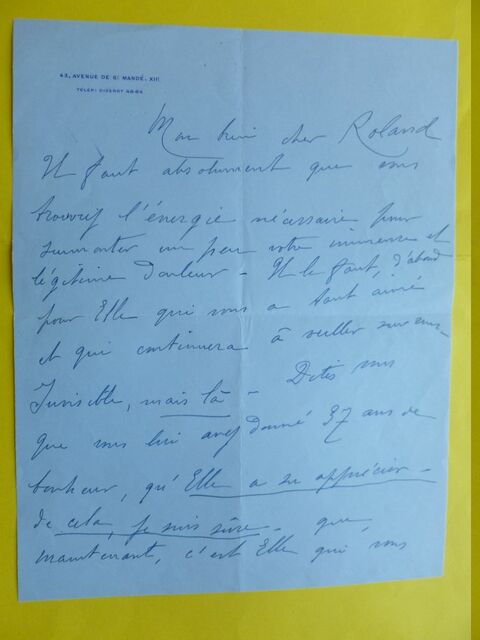 43, AVENUE DE ST MANDÉ. XIIE
TÉLÉPH: DIDEROT
Mon bien cher Roland
Il faut absolument que vous
trouviez l'énergie nécessaire pour
surmonter un peu votre immense et
légitime douleur - Il le faut, d'abord
pour Elle qui vous a tant aimé
et qui continuera à veiller sur vous -
Invisible, mais là - Dites vous
que vous lui avez donné 37 ans de
bonheur, qu'Elle a su apprécier -
de cela, je suis sûre - que,
maintenant, c'est Elle qui vous